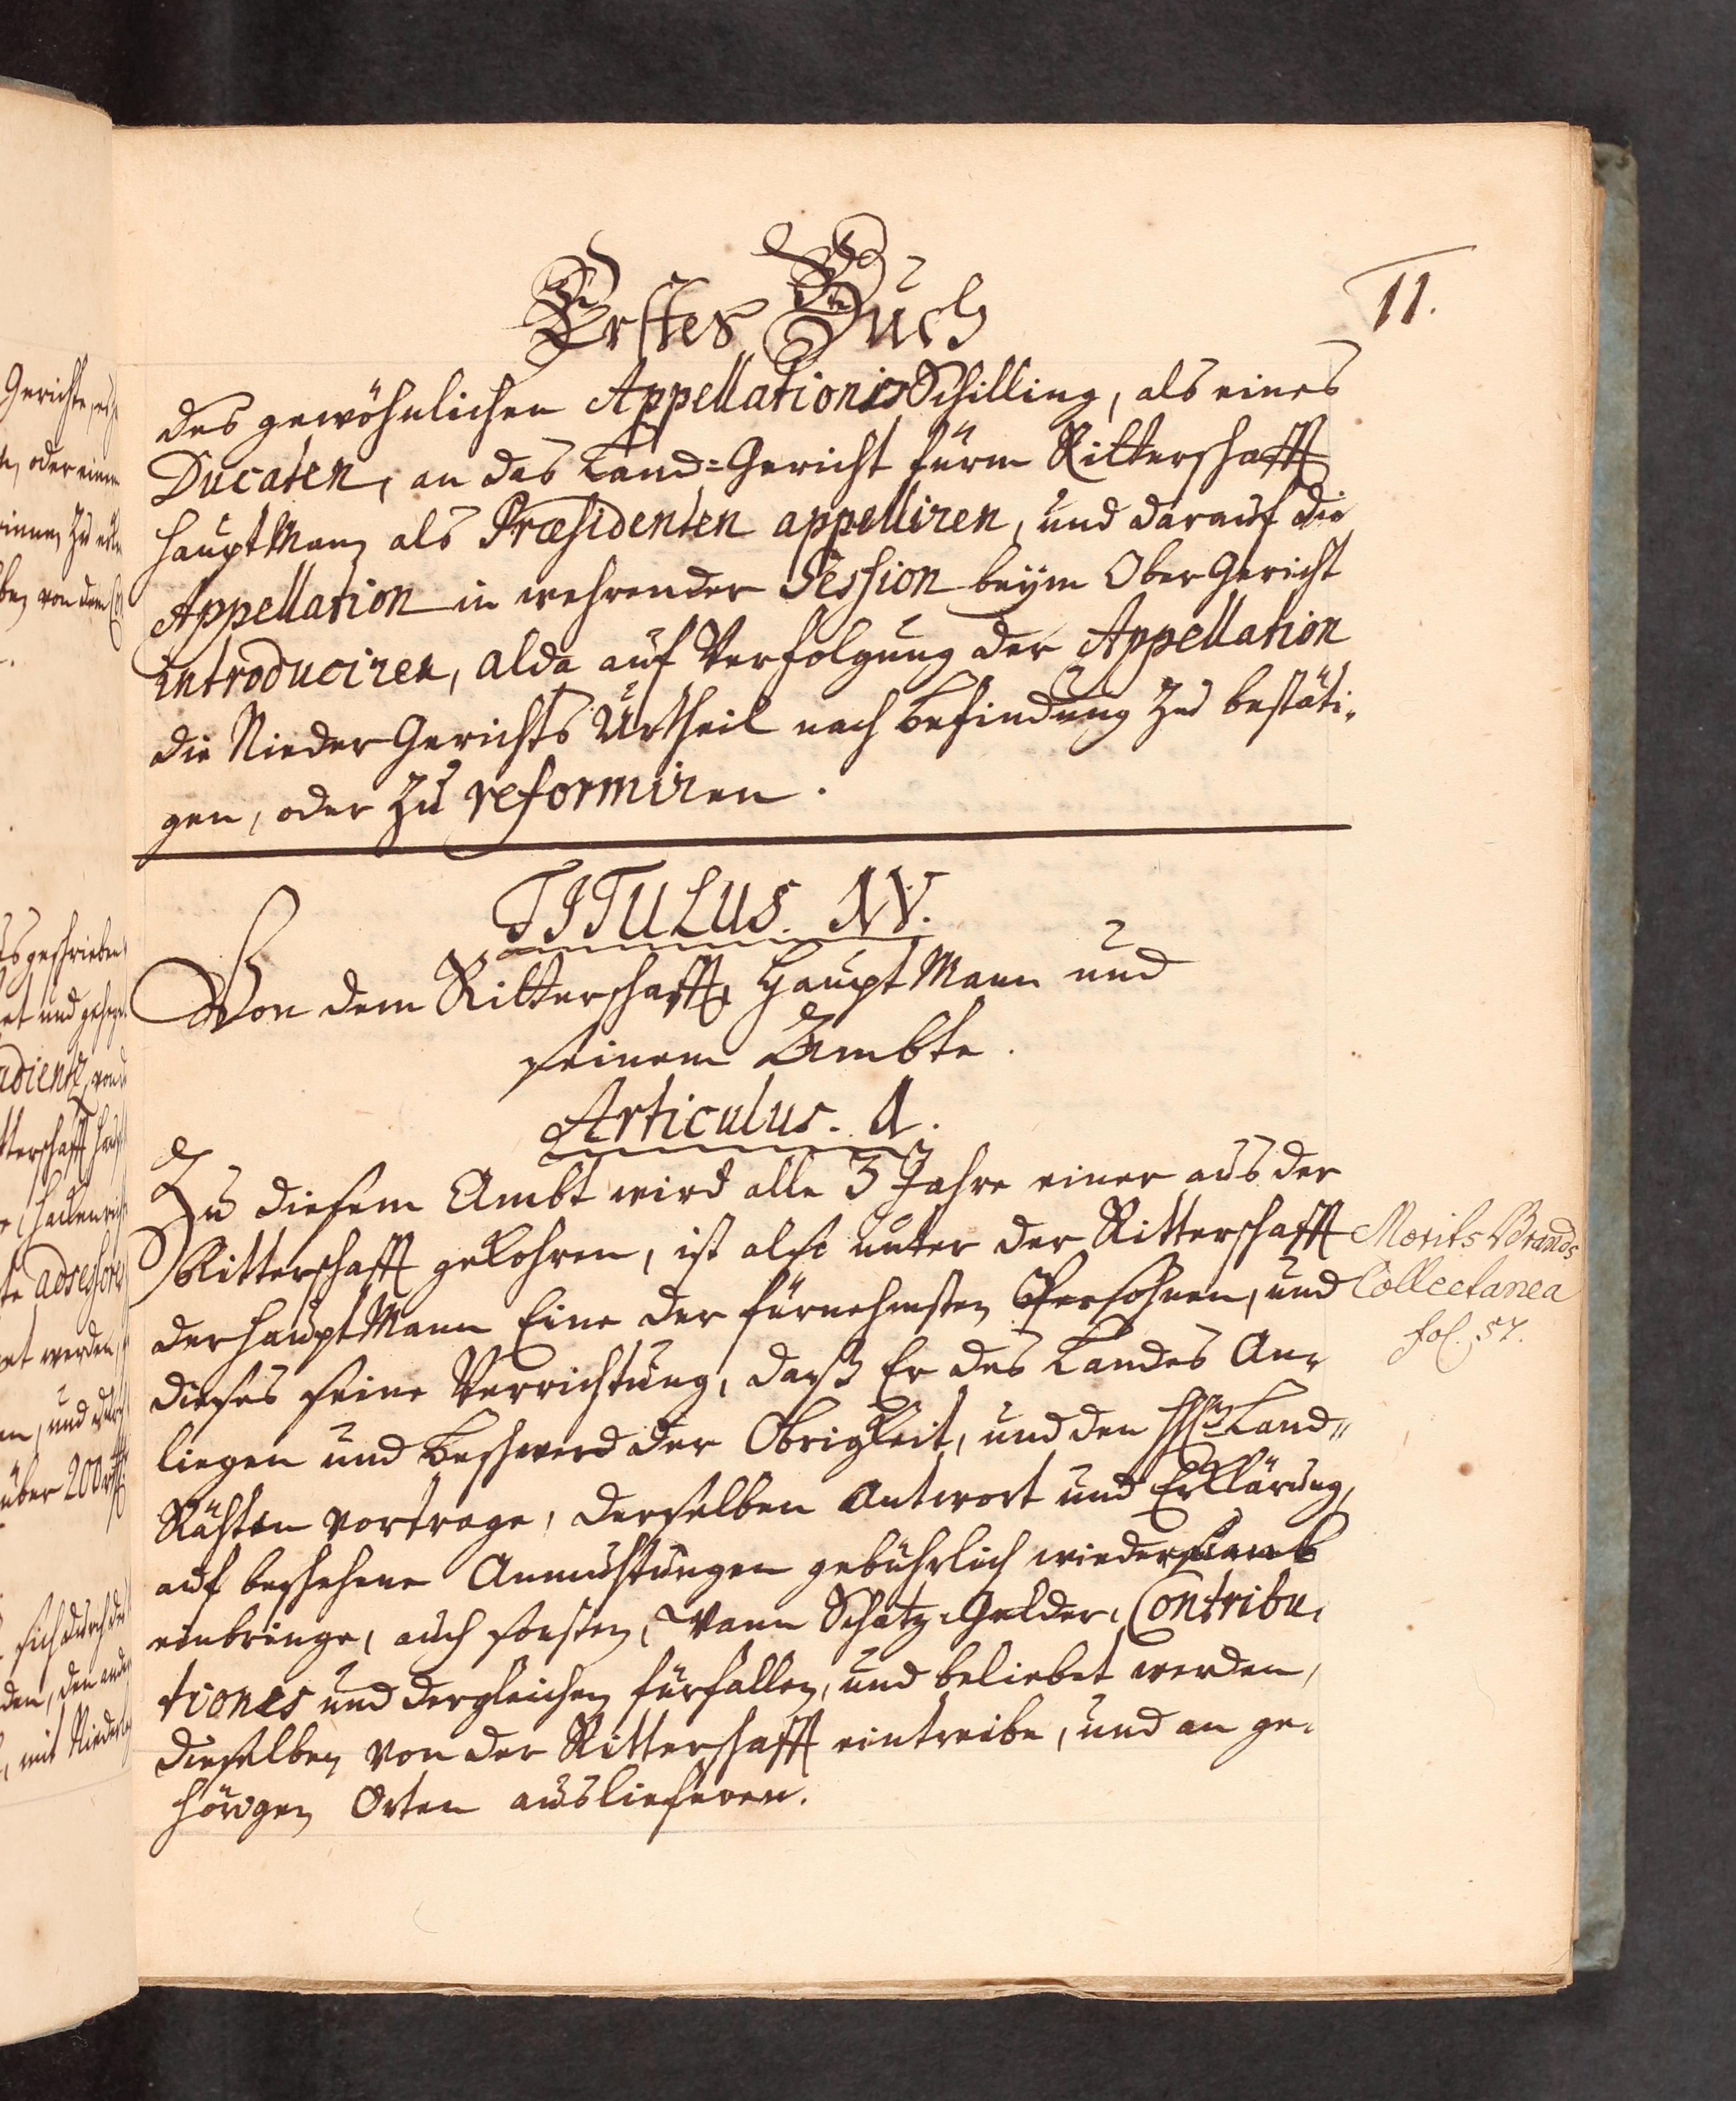 Erstes Buch
11.
des gewöhnlichen Appellations Schilling, als eines
Ducaten, an das Land=Gericht fürm Ritterschafft
HauptMann als Præsidenten appelliren, und darauf die
Appellation in wehrender Session beym Ober Gericht
introduciren, alda auf Verfolgung der Appellation
die Nieder Gerichts Urtheil nach Befindung zu bestäti-
gen, oder zu reformiren.
TITULUS. IV.
Von dem Ritterschafft HauptMann und
seinem Ambte.
Articulus. 1.
Zu diesem Ambt wird alle 3 Jahre einer aus der
Ritterschafft gekohren, ist also unter der Ritterschafft
der HauptMann Eine der fürnehmsten Persohnen, und
dieses seine Verrichtung, daß Er des Landes An-
liegen und Beschwerd der Obrigkeit, und den HHn Land-
Rähten vortrage, derselben Antwort und Erklärung,
auf beschehene Anmuhtungen gebührlich wieder
einbringe, auch sonsten, Wann Schatz-Gelder, Contribu-
tiones und dergleichen fürfallen, und beliebet werden,
dieselben von der Ritterschafft eintreibe, und an ge-
hörigen Orten ausliefern.
Morits Brands
Collectanea
fol. 57.